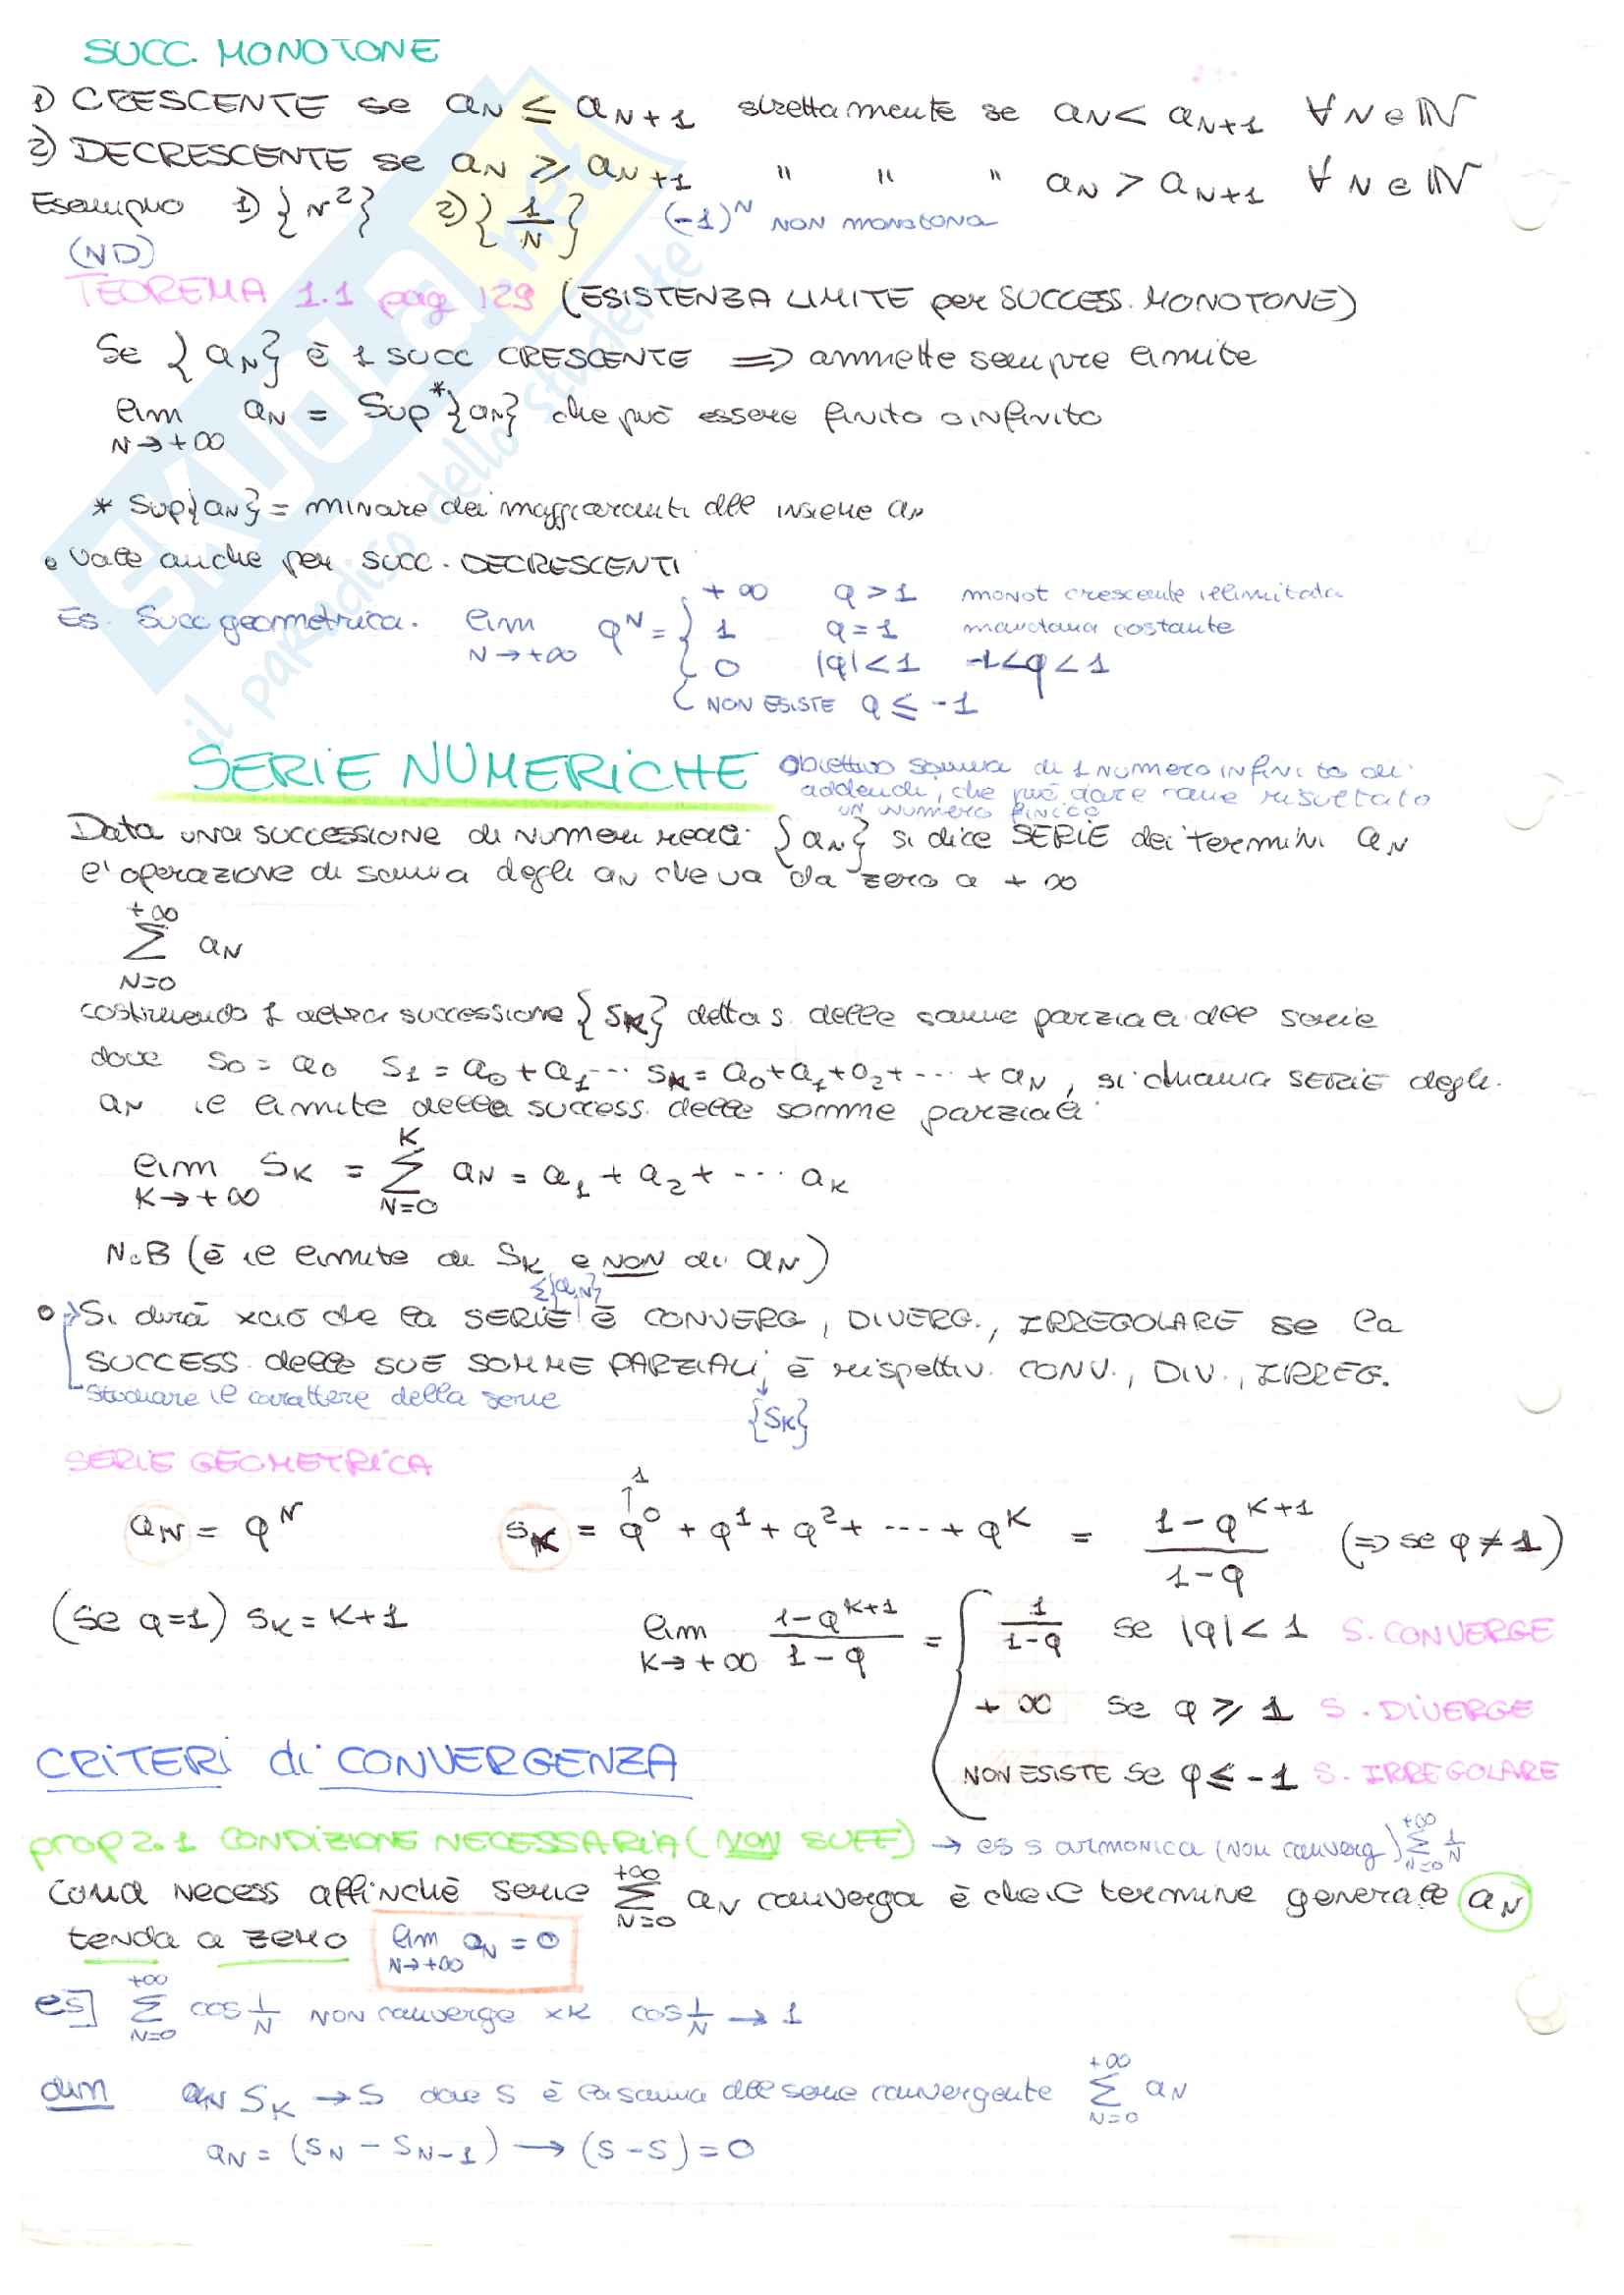 SUCC. MONOTONE
1) CRESCENTE se aN ≤ aN+1 strettamente se aN < aN+1 ∀ N ∈ ℕ
2) DECRESCENTE se aN ≥ aN+1 " " " aN > aN+1 ∀ N ∈ ℕ
Esempio 1) {N²} 2) {1/N} (-1)^N NON MONOTONA
(ND)
TEOREMA 1.1 pag 129 (ESISTENZA LIMITE per SUCCESS. MONOTONE)
Se {aN} è 1 SUCC CRESCENTE => ammette sempre limite
lim N→+∞ aN = Sup* {aN} che può essere finito o infinito
* Sup{aN} = minore dei maggioranti dell insieme aN
• Vale anche per SUCC. DECRESCENTI
Es. Succ geometrica. lim N→+∞ q^N = {
+∞ q > 1 monot crescente illimitata
1 q = 1 monotona costante
0 |q| < 1 -1<q<1
NON ESISTE q ≤ -1
SERIE NUMERICHE Obiettivo somma di 1 numero infinito di
addendi, che può dare come risultato
un numero finito
Data una successione di numeri reali {aN} si dice SERIE dei termini aN
l'operazione di somma degli aN che va da zero a +∞
+∞ Σ N=0 aN
costruendo 1 altra successione {SK} detta s. delle somme parziali dell serie
dove S0 = a0 S1 = a0 + a1 ... SK = a0+a1+a2+ --- + aN, si chiama SERIE degli
aN il limite della success. delle somme parziali
lim K→+∞ SK = K Σ N=0 aN = a1 + a2 + --- aK
N.B (è il limite di SK e NON di aN)
Σ{aN}
Si dirà xciò che la SERIE è CONVERG, DIVERG., IRREGOLARE se la
SUCCESS delle SUE SOMME PARZIALI è rispettiv. CONV., DIV., IRREG.
Studiare il carattere della serie {SK}
SERIE GEOMETRICA
1
aN = q^N SK = q^0 + q^1 + q^2 + ---- + q^K = (1-q^(K+1))/(1-q) (=> se q ≠ 1)
(se q=1) SK = K+1 lim K→+∞ (1-q^(K+1))/(1-q) = { 1/(1-q) se |q| < 1 S. CONVERGE
+∞ se q ≥ 1 S. DIVERGE
NON ESISTE se q ≤ -1 S. IRREGOLARE
CRITERI di CONVERGENZA
prop 2.1 CONDIZIONE NECESSARIA (NON SUFF) → es s armonica (non converg) +∞ Σ N=0 1/N
Cond necess affinchè serie +∞ Σ N=0 aN converga è che il termine generale aN
tenda a zero lim N→+∞ aN = 0
es] +∞ Σ N=0 cos 1/N NON converge xk cos 1/N → 1
dim aN SK → S dove S è la somma dell serie convergente +∞ Σ N=0 aN
aN = (SN - SN-1) → (S-S) = 0
SKUOLA.net
il paradiso dello studente